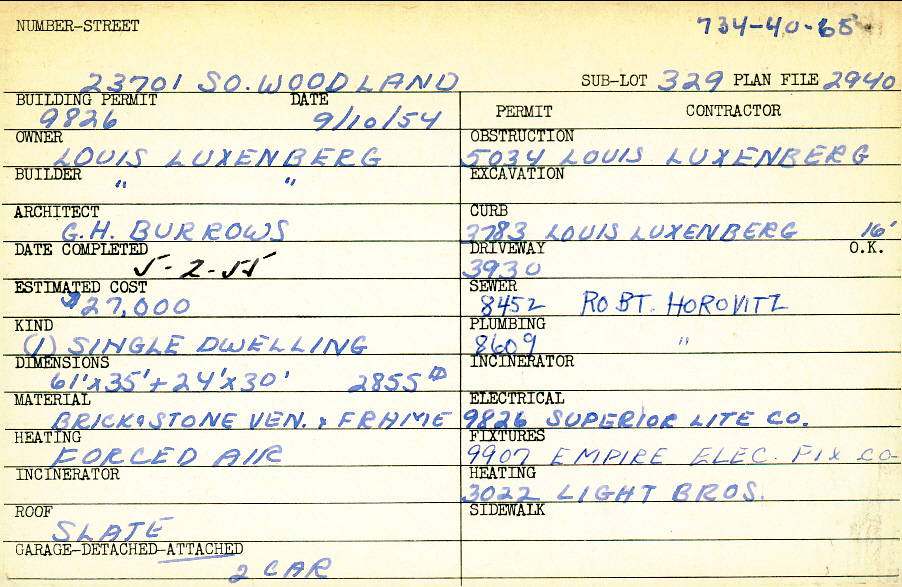 NUMBER-STREET 734-40-65
23701 SO. WOODLAND SUB-LOT 329 PLAN FILE 2940
BUILDING PERMIT DATE
9826 9/10/54
OWNER
LOUIS LUXENBERG
BUILDER
" "
ARCHITECT
G.H. BURROWS
DATE COMPLETED
5-2-55
ESTIMATED COST
$27,000
KIND
(1) SINGLE DWELLING
DIMENSIONS
61'x35'+24'x30' 2855
MATERIAL
BRICK & STONE VEN. & FRAME
HEATING
FORCED AIR
INCINERATOR
ROOF
SLATE
GARAGE-DETACHED-ATTACHED
2 CAR
PERMIT CONTRACTOR
OBSTRUCTION
5034 LOUIS LUXENBERG
EXCAVATION
CURB
3783 LOUIS LUXENBERG 16'
DRIVEWAY O.K.
3930
SEWER
8452 ROBT. HOROVITZ
PLUMBING
8609 "
INCINERATOR
ELECTRICAL
9826 SUPERIOR LITE CO.
FIXTURES
9907 EMPIRE ELEC. FIX CO-
HEATING
3022 LIGHT BROS.
SIDEWALK